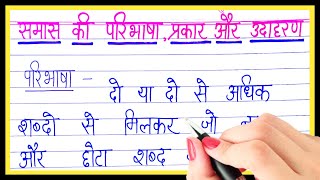 समास की परिभाषा, प्रकार और उदाहरण
परिभाषा - दो या दो से अधिक
शब्दो से मिलकर जो
और छोटा शब्द